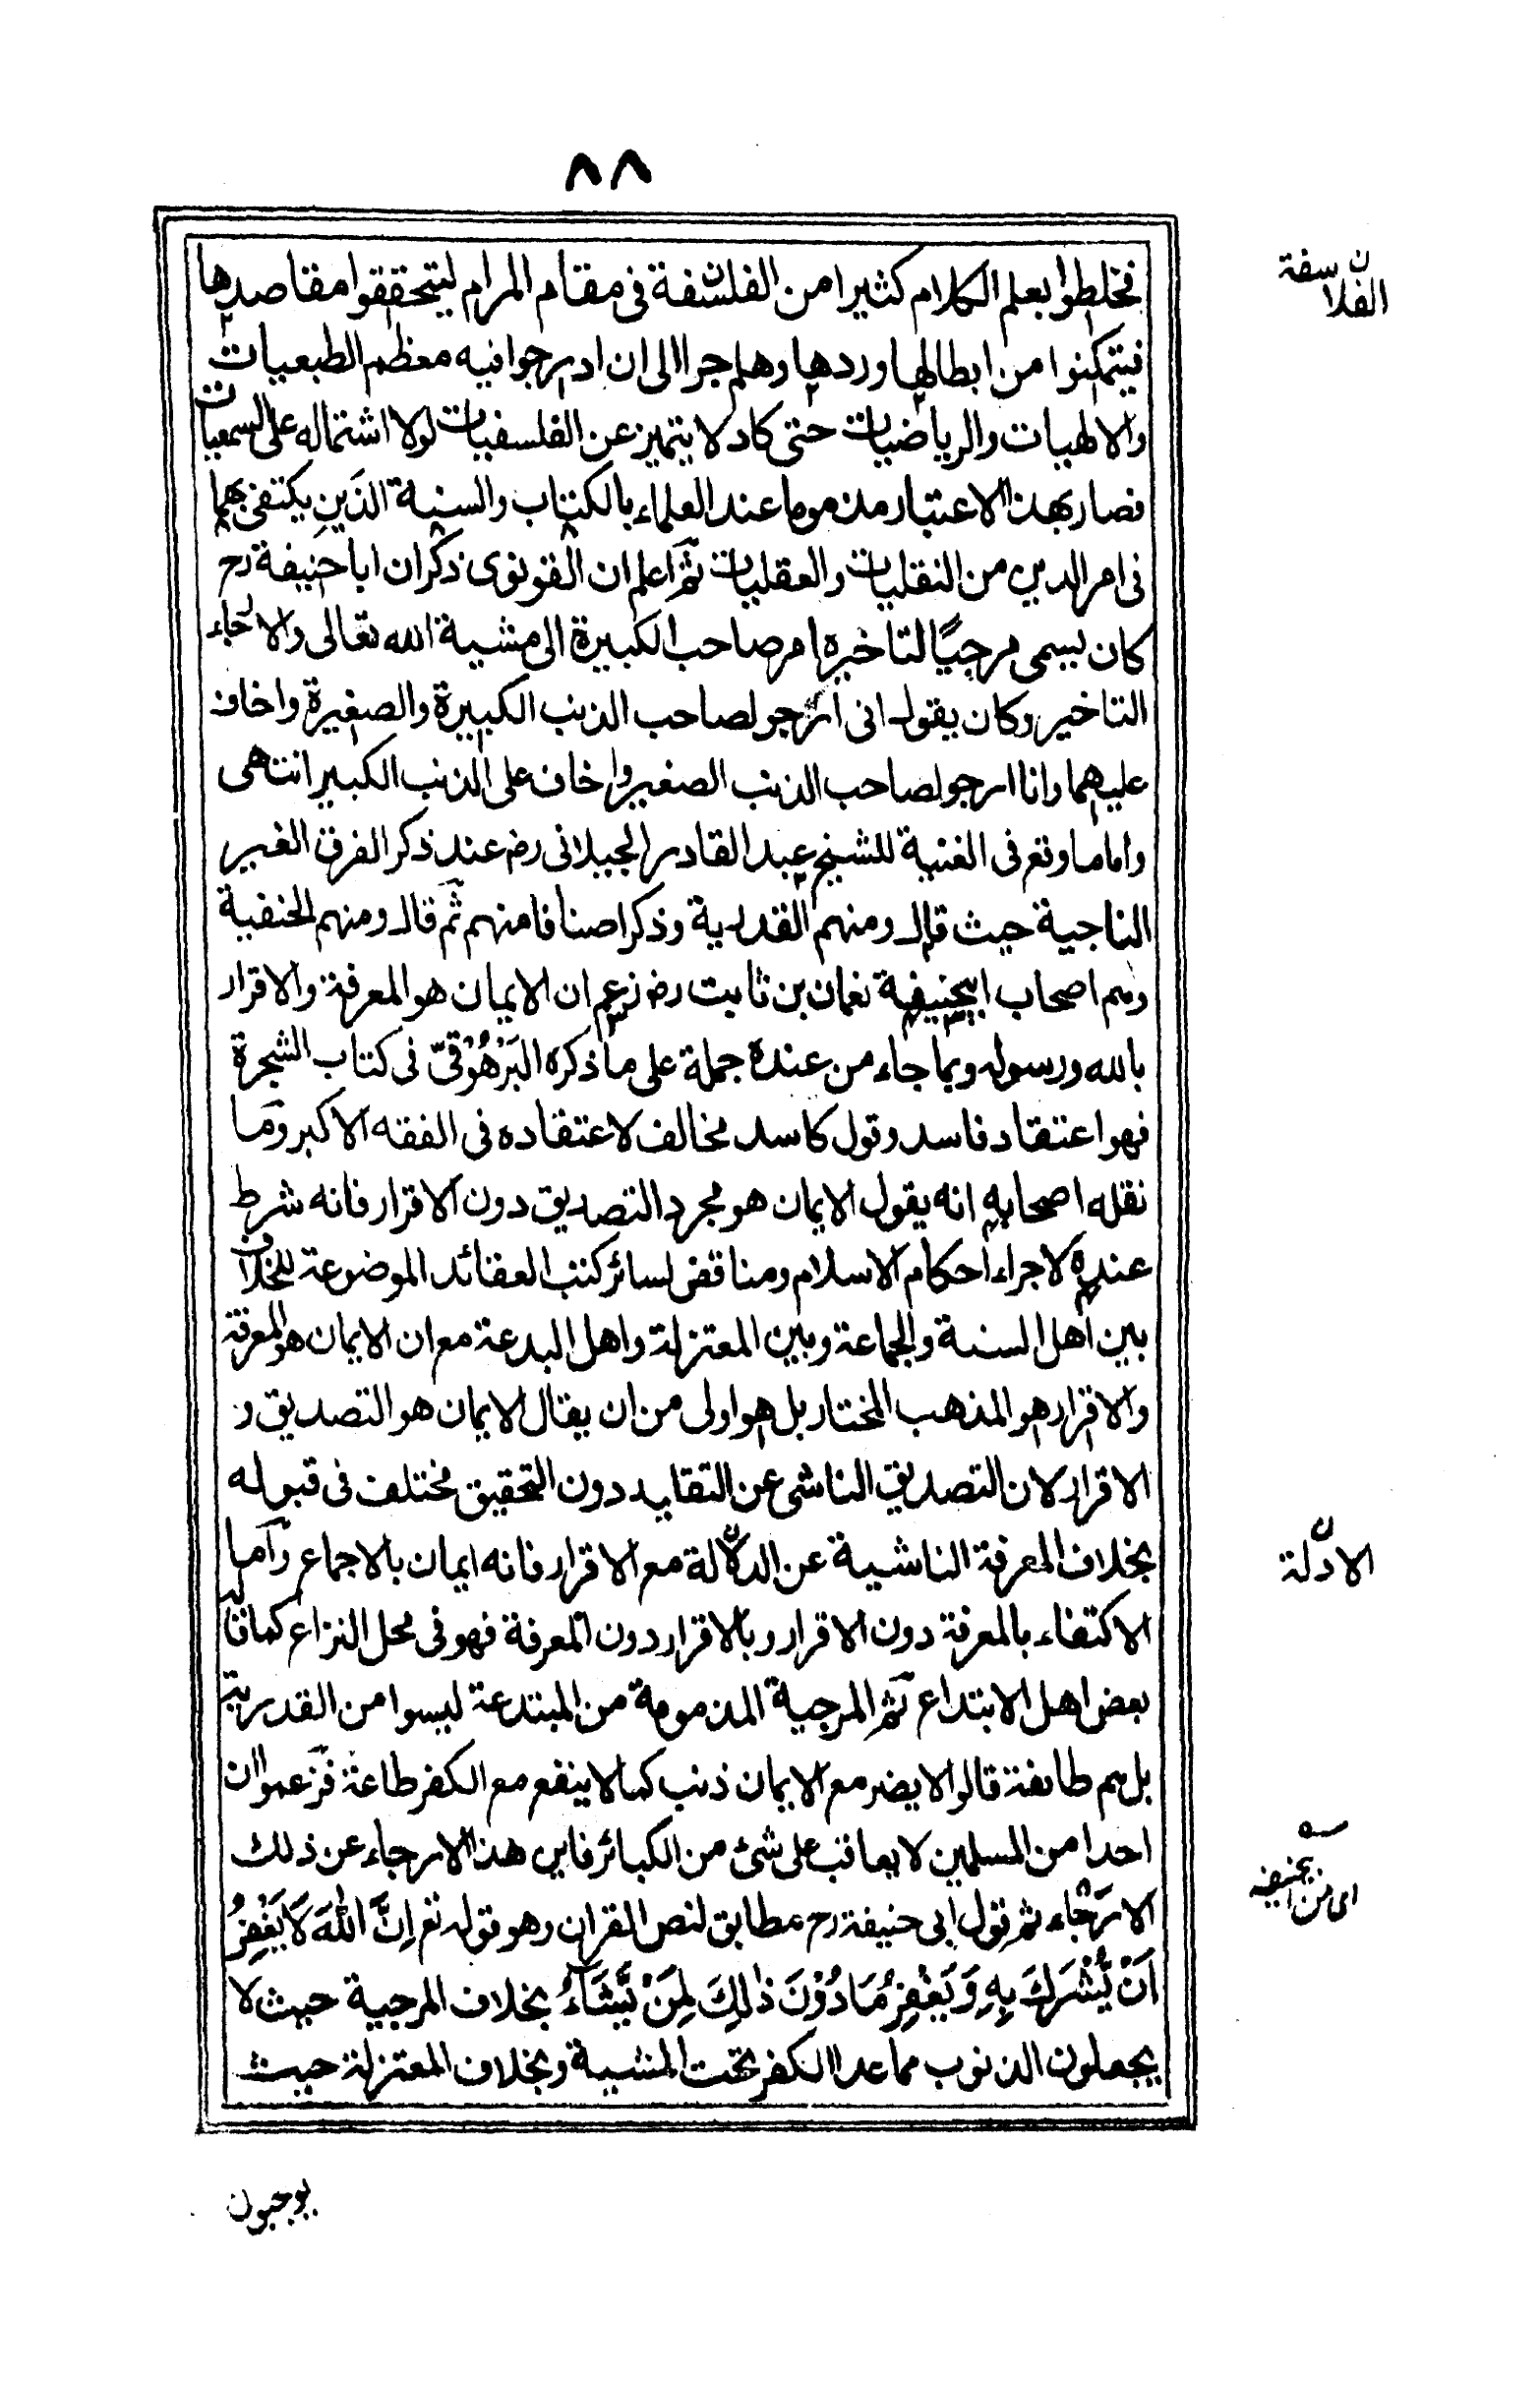 ۸۸
فخلطوا بعلم الكلام كثيرا من الفلسفة فى مقام المرام ليتحققوا مقاصدها
فيتمكنوا من ابطالها وردها وهلم جرا الى ان ادرجوا فيه معظم الطبعيات
والالهيات والرياضيات حتى كاد لا يتميز عن الفلسفيات لولا اشتماله على السمعيات
فصار بهذا الاعتبار مذموما عند العلماء بالكتاب والسنة الذَينِ يكتفى بهما
فى امر الدين من النقليات والعقليات ثم اعلم ان القونوى ذكر ان ابا حنيفة رح
كان يسمى مرجيًا لتاخيره امر صاحب الكبيرة الى مشية الله تعالى والارجاء
التاخير وكان يقول انى ارجو لصاحب الذنب الكبيرة والصغيرة واخاف
عليهما وانا ارجو لصاحب الذنب الصغير واخاف على الذنب الكبير انتهى
واما ما وقع فى الغنية للشيخ عبد القادر الجيلانى رض عند ذكر الفرق الغير
الناجية حيث قال ومنهم القدرية وذكر اصنافا منهم ثم قال ومنهم الحنفية
وهم اصحاب ابيحنيفة نعمان بن ثابت رض زعم ان الايمان هو المعرفة والاقرار
بالله ورسوله وبما جاء من عنده جملة على ما ذكره البَرْهُوْقىّ فى كتاب الشجرة
فهو اعتقاد فاسد وقول كاسد مخالف لاعتقاده فى الفقه الاكبر وما
نقله اصحابه انه يقول الايمان هو مجرد التصديق دون الاقرار فانه شرط
عنده لاجراء احكام الاسلام ومناقض لسائر كتب العقائد الموضوعة للخلاف
بين اهل السنة والجماعة وبين المعتزلة واهل البدعة مع ان الايمان هو المعرفة
والاقرار هو المذهب المختار بل هو اولى من ان يقال الايمان هو التصديق و
الاقرار لان التصديق الناشى عن التقليد دون التحقيق مختلف فى قبوله
بخلاف المعرفة الناشية عن الدلالة مع الاقرار فانه ايمان بالاجماع واما
الاكتفاء بالمعرفة دون الاقرار وبالاقرار دون المعرفة فهو فى محل النزاع كما قال
بعض اهل الابتداع ثم المرجية المذمومة من المبتدعة ليسوا من القدرية
بل هم طائفة قالوا لا يضر مع الايمان ذنب كما لا ينفع مع الكفر طاعة فزعموا ان
احدا من المسلمين لا يعاقب على شئ من الكبائر فاين هذا الارجاء عن ذلك
الارجاء ثم قول ابى حنيفة رح مطابق لنص القران وهو قوله تع اِنَّ اللّٰهَ لَا يَغْفِرُ
اَنْ يُّشْرَكَ بِهٖ وَيَغْفِرُ مَا دُوْنَ ذٰلِكَ لِمَنْ يَّشَآءُ بخلاف المرجية حيث لا
يجعلون الذنوب مما عدا الكفر تحت المشية وبخلاف المعتزلة حيث
يوجبون
الفلاسفة ن
الادلة ن
اى من ابيحنيفه